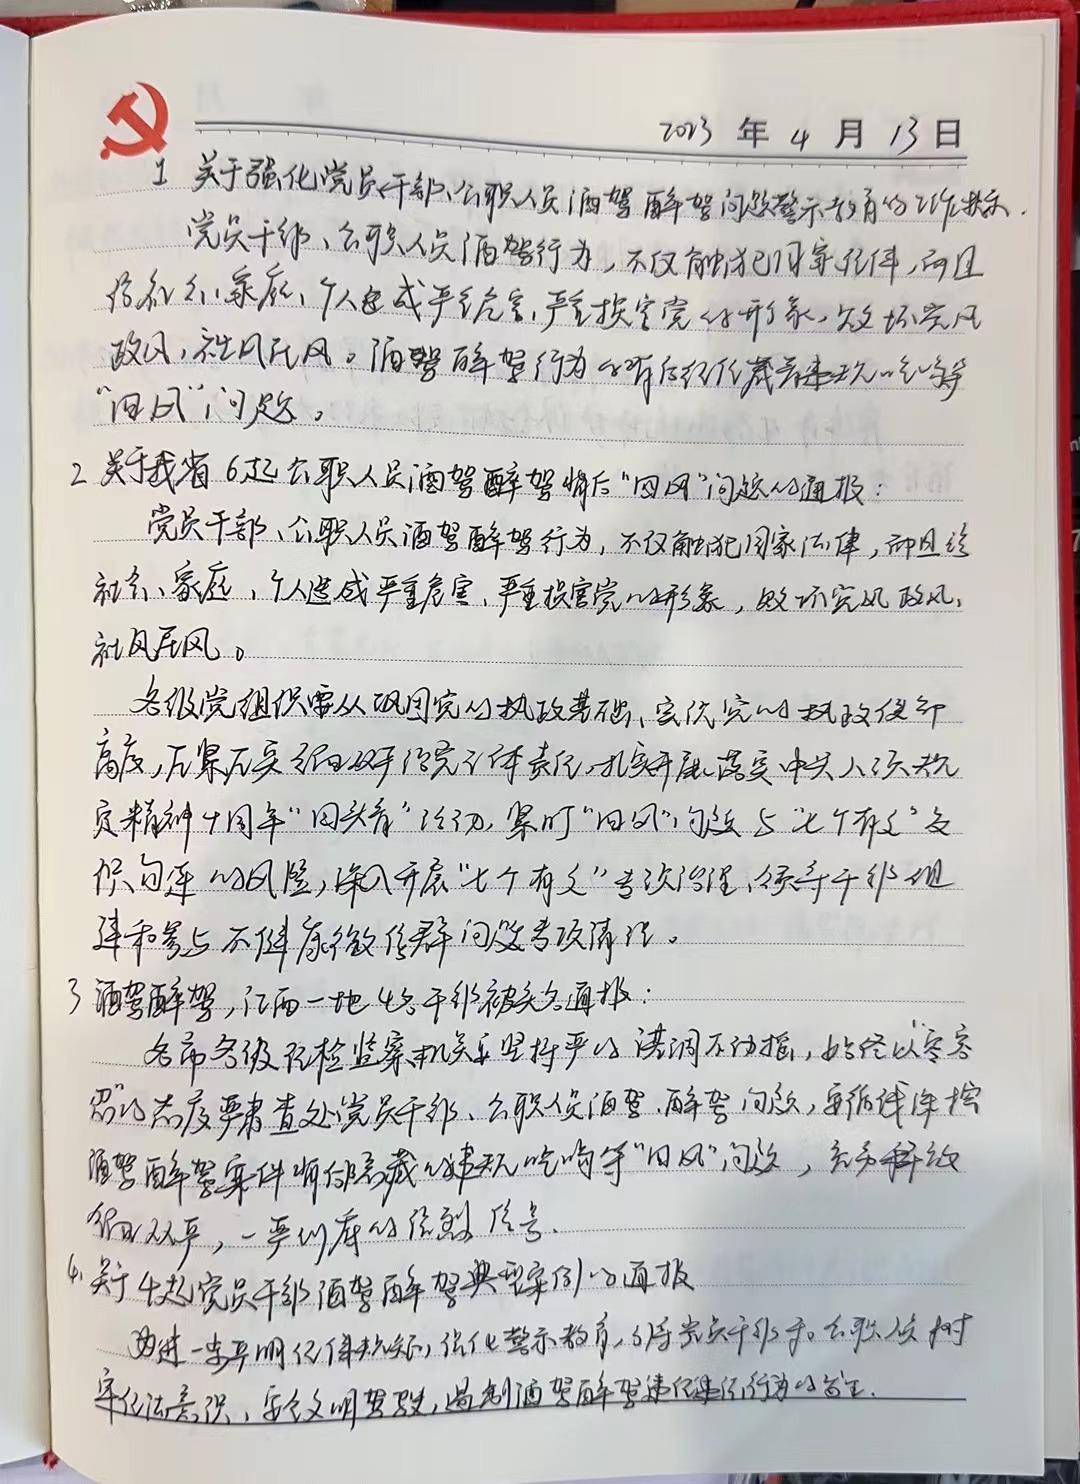 2023 年 4 月 13 日
1 关于强化党员干部、公职人员酒驾醉驾问题警示教育的工作提示.
党员干部、公职人员酒驾行为,不仅触犯国家法律,而且
给社会、家庭、个人造成严重危害,严重损害党的形象,败坏党风
政风,社风民风。酒驾醉驾行为的背后往往藏着违规吃喝等
“四风”问题。
2 关于我省6起公职人员酒驾醉驾背后“四风”问题的通报:
党员干部、公职人员酒驾醉驾行为,不仅触犯国家法律,而且给
社会、家庭、个人造成严重危害、严重损害党的形象,败坏党风政风、
社风民风。
各级党组织要从巩固党的执政基础、党的执政使命
高度,压紧压实管党治党主体责任,扎实开展落实中央八项规
定精神十周年“回头看”活动,紧盯“四风”问题与“七个有之”交
织勾连的风险,深入开展“七个有之”专项治理、领导干部组
建和参与不健康微信群问题专项清理。
3 酒驾醉驾,江西一地4名干部被点名通报:
各市各级纪检监察机关要坚持严的基调不动摇,始终以“零容
忍”的态度严肃查处党员干部、公职人员酒驾、醉驾问题,要循线深挖
酒驾醉驾案件背后隐藏的违规吃喝等“四风”问题,释放
越往后越严,一严到底的强烈信号.
4. 关于4起党员干部酒驾醉驾典型案例的通报
为进一步严明纪律规矩,强化警示教育,引导党员干部、公职人员树
牢纪法意识、安全文明驾驶,遏制酒驾醉驾违纪违法行为的发生.